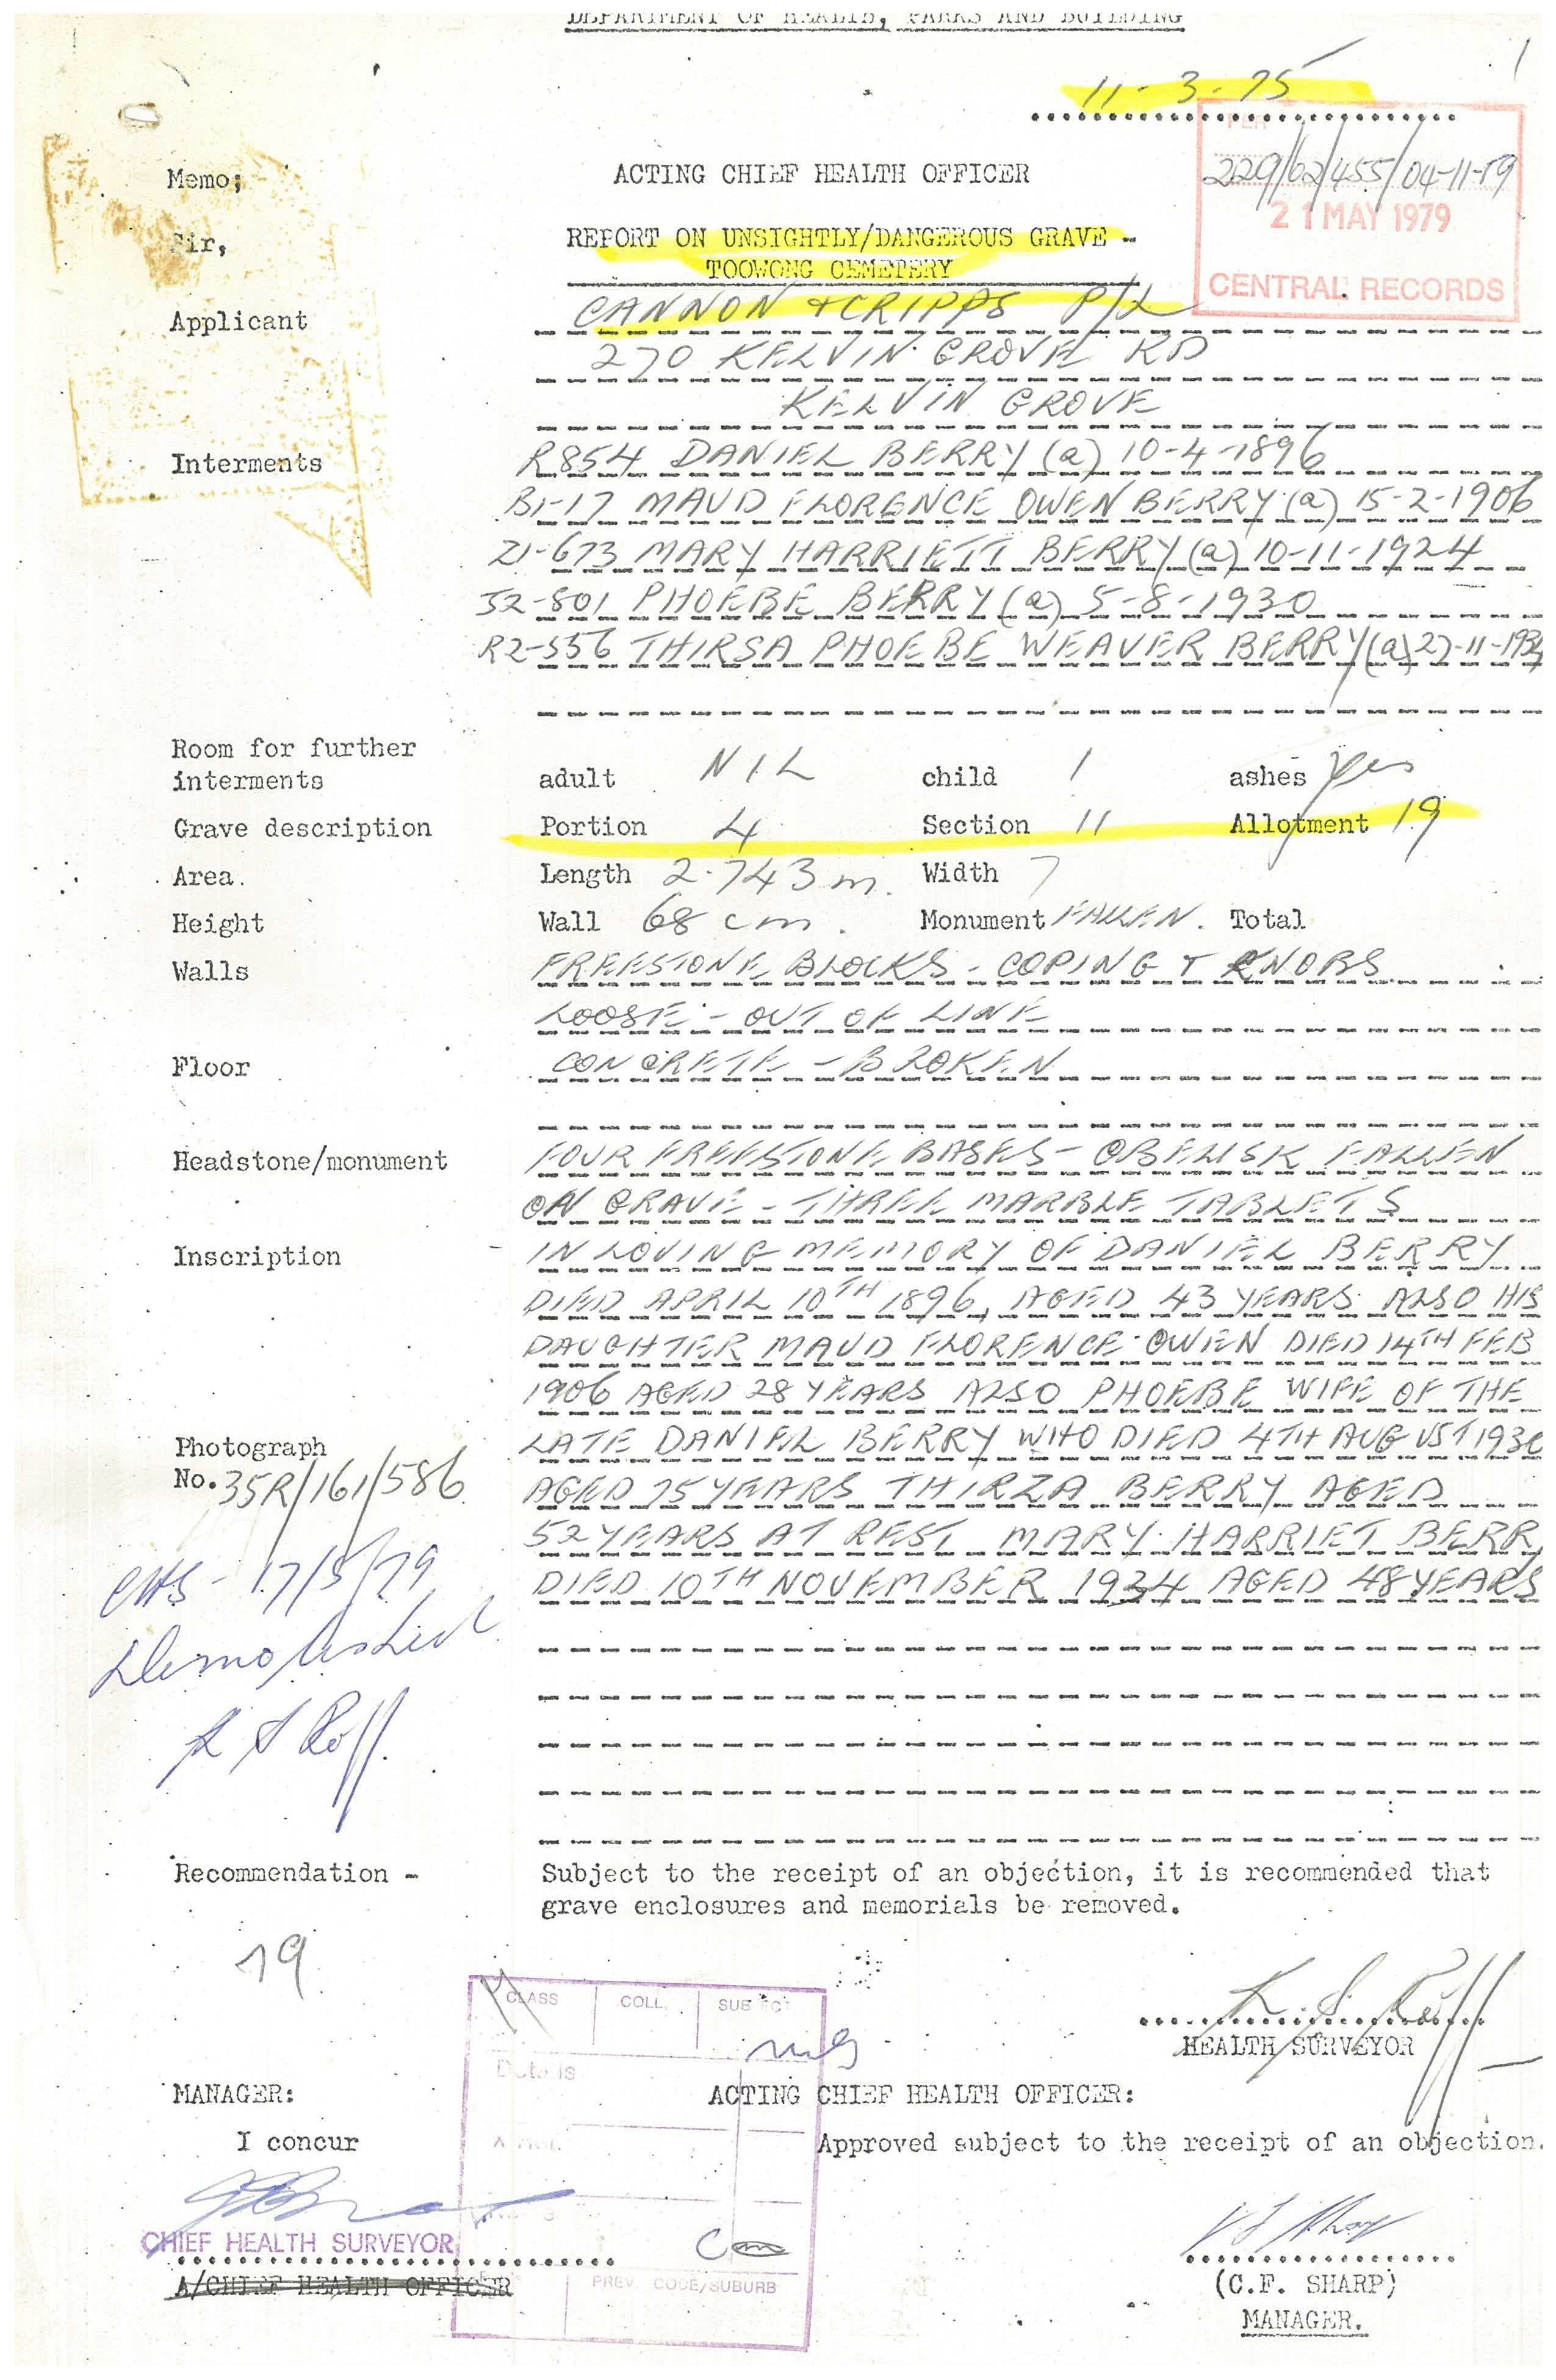 DEPARTMENT OF HEALTH, PARKS AND BUILDING
11-3-75
229/62/455/04-11-19
21 MAY 1979
CENTRAL RECORDS
Memo;
ACTING CHIEF HEALTH OFFICER
Sir,
REPORT ON UNSIGHTLY/DANGEROUS GRAVE -
TOOWONG CEMETERY
Applicant
CANNON & CRIPPS P/L
270 KELVIN GROVE RD
KELVIN GROVE
Interments
R854 DANIEL BERRY (a) 10-4-1896
B1-17 MAUD FLORENCE OWEN BERRY (a) 15-2-1906
Z1-673 MARY HARRIETT BERRY (a) 10-11-1924
J2-801 PHOEBE BERRY (a) 5-8-1930
R2-556 THIRSA PHOEBE WEAVER BERRY (a) 27-11-1934
Room for further
interments adult NIL child 1 ashes Yes
Grave description Portion 4 Section 11 Allotment 19
Area. Length 2.743 m. Width 7
Height Wall 68 cm. Monument FALLEN. Total
Walls FREESTONE BLOCKS - COPING + KNOBS
LOOSE - OUT OF LINE
Floor CONCRETE - BROKEN
Headstone/monument FOUR FREESTONE BASES - OBELISK FALLEN
ON GRAVE - THREE MARBLE TABLETS
Inscription IN LOVING MEMORY OF DANIEL BERRY
DIED APRIL 10TH 1896, AGED 43 YEARS ALSO HIS
DAUGHTER MAUD FLORENCE OWEN DIED 14TH FEB
1906 AGED 28 YEARS ALSO PHOEBE WIFE OF THE
LATE DANIEL BERRY WHO DIED 4TH AUGUST 1930
AGED 75 YEARS THIRZA BERRY AGED
52 YEARS AT REST MARY HARRIET BERR
DIED 10TH NOVEMBER 1934 AGED 48 YEARS
Photograph
No. 35R/161/586
CHS - 17/5/79
Demolished
K S Roff.
Recommendation - Subject to the receipt of an objection, it is recommended that
grave enclosures and memorials be removed.
19
CLASS COLL. SUBJECT
Details
HEALTH SURVEYOR
MANAGER: ACTING CHIEF HEALTH OFFICER:
I concur Approved subject to the receipt of an objection.
CHIEF HEALTH SURVEYOR
A/CHIEF HEALTH OFFICER
PREV. CODE/SUBURB
(C.F. SHARP)
MANAGER.